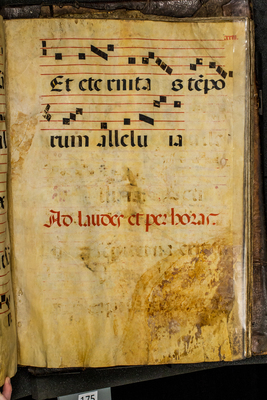 Et ete rnita s tẽpo
rum allelu ia
Ad laudes et per horas
175